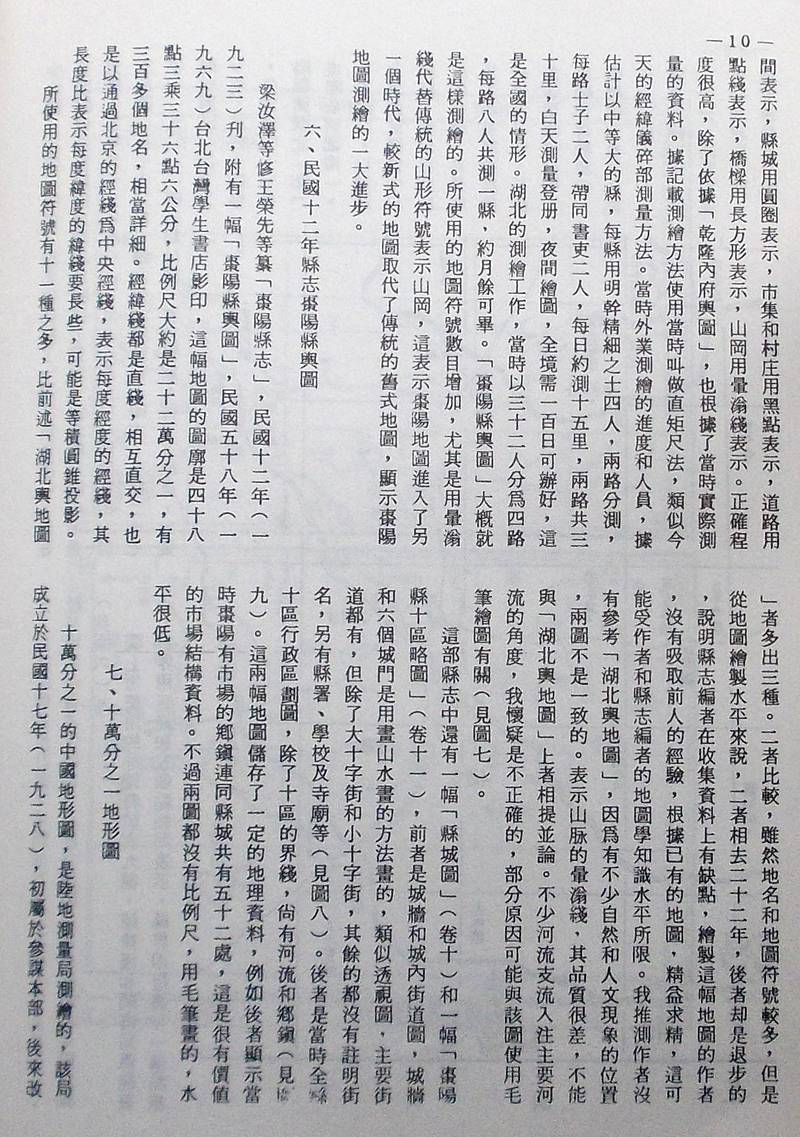 —10—
間表示，縣城用圓圈表示，市集和村庄用黑點表示，道路用
點綫表示，橋樑用長方形表示，山岡用暈滃綫表示。正確程
度很高，除了依據「乾隆內府輿圖」，也根據了當時實際測
量的資料。據記載測繪方法使用當時叫做直矩尺法，類似今
天的經緯儀碎部測量方法。當時外業測繪的進度和人員，據
估計以中等大的縣，每縣用明幹精細之士四人，兩路分測，
每路士子二人，帶同書吏二人，每日約測十五里，兩路共三
十里，白天測量登册，夜間繪圖，全境需一百日可辦好，這
是全國的情形。湖北的測繪工作，當時以三十二人分爲四路
，每路八人共測一縣，約月餘可畢。「棗陽縣輿圖」大概就
是這樣測繪的。所使用的地圖符號數目增加，尤其是用暈滃
綫代替傳統的山形符號表示山岡，這表示棗陽地圖進入了另
一個時代，較新式的地圖取代了傳統的舊式地圖，顯示棗陽
地圖測繪的一大進步。
六、民國十二年縣志棗陽縣輿圖
梁汝澤等修王榮先等纂「棗陽縣志」，民國十二年（一
九二三）刊，附有一幅「棗陽縣輿圖」，民國五十八年（一
九六九）台北台灣學生書店影印，這幅地圖的圖廓是四十八
點三乘三十六點六公分，比例尺大約是二十二萬分之一，有
三百多個地名，相當詳細。經緯綫都是直綫，相互直交，也
是以通過北京的經綫爲中央經綫，表示每度經度的經綫，其
長度比表示每度緯度的緯綫要長些，可能是等積圓錐投影。
所使用的地圖符號有十一種之多，比前述「湖北輿地圖
」者多出三種。二者比較，雖然地名和地圖符號較多，但是
從地圖繪製水平來說，二者相去二十二年，後者却是退步的
，說明縣志編者在收集資料上有缺點，繪製這幅地圖的作者
，沒有吸取前人的經驗，根據已有的地圖，精益求精，這可
能受作者和縣志編者的地圖學知識水平所限。我推測作者沒
有參考「湖北輿地圖」，因爲有不少自然和人文現象的位置
，兩圖不是一致的。表示山脉的暈滃綫，其品質很差，不能
與「湖北輿地圖」上者相提並論。不少河流支流入注主要河
流的角度，我懷疑是不正確的，部分原因可能與該圖使用毛
筆繪圖有關（見圖七）。
這部縣志中還有一幅「縣城圖」（卷十）和一幅「棗陽
縣十區略圖」（卷十一），前者是城牆和城內街道圖，城牆
和六個城門是用畫山水畫的方法畫的，類似透視圖，主要街
道都有，但除了大十字街和小十字街，其餘的都沒有註明街
名，另有縣署、學校及寺廟等（見圖八）。後者是當時全縣
十區行政區劃圖，除了十區的界綫，尙有河流和鄉鎭（見圖
九）。這兩幅地圖儲存了一定的地理資料，例如後者顯示當
時棗陽有市場的鄉鎭連同縣城共有五十二處，這是很有價值
的市場結構資料。不過兩圖都沒有比例尺，用毛筆畫的，水
平很低。
七、十萬分之一地形圖
十萬分之一的中國地形圖，是陸地測量局測繪的，該局
成立於民國十七年（一九二八），初屬於參謀本部，後來改